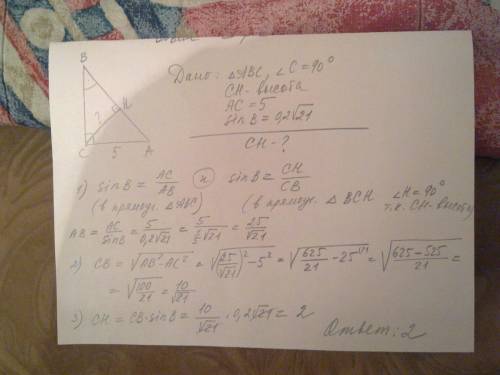 B
H
?
C 5 A
Дано: △ABC, ∠C = 90°
CH - высота
AC = 5
sin B = 0,2√21
CH - ?
1) sin B = AC/AB и sin B = CH/CB
(в прямоуг. △ABC) (в прямоуг. △ BCH ∠H = 90° т.к. CH - высота)
AB = AC/sin B = 5/(0,2√21) = 5/(1/5 √21) = 25/√21
2) CB = √(AB² - AC²) = √((25/√21)² - 5²) = √(625/21 - 25) = √((625 - 525)/21) =
= √(100/21) = 10/√21
3) CH = CB · sin B = 10/√21 · 0,2√21 = 2
Ответ: 2